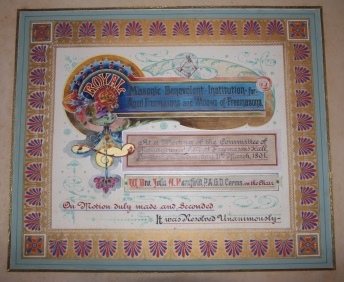 ROYAL
Masonic Benevolent Institution for
Aged Freemasons and Widows of Freemasons
At a Meeting of the Committee of
Freemasons' Hall
March, 1891.
W. Bro. John A. P.A.G.D. Cerms. in the Chair
On Motion duly made and Seconded
It was Resolved Unanimously